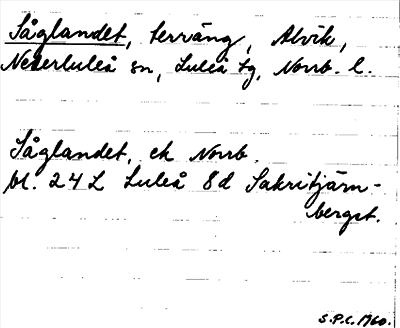 Såglandet, terräng, Alvik,
Nederluleå sn, Luleå tg, Norrb. l.
Såglandet, ek Norrb.
bl. 24 L Luleå 8d Sakritjärn-
bergst.
S.P.C. 1960.